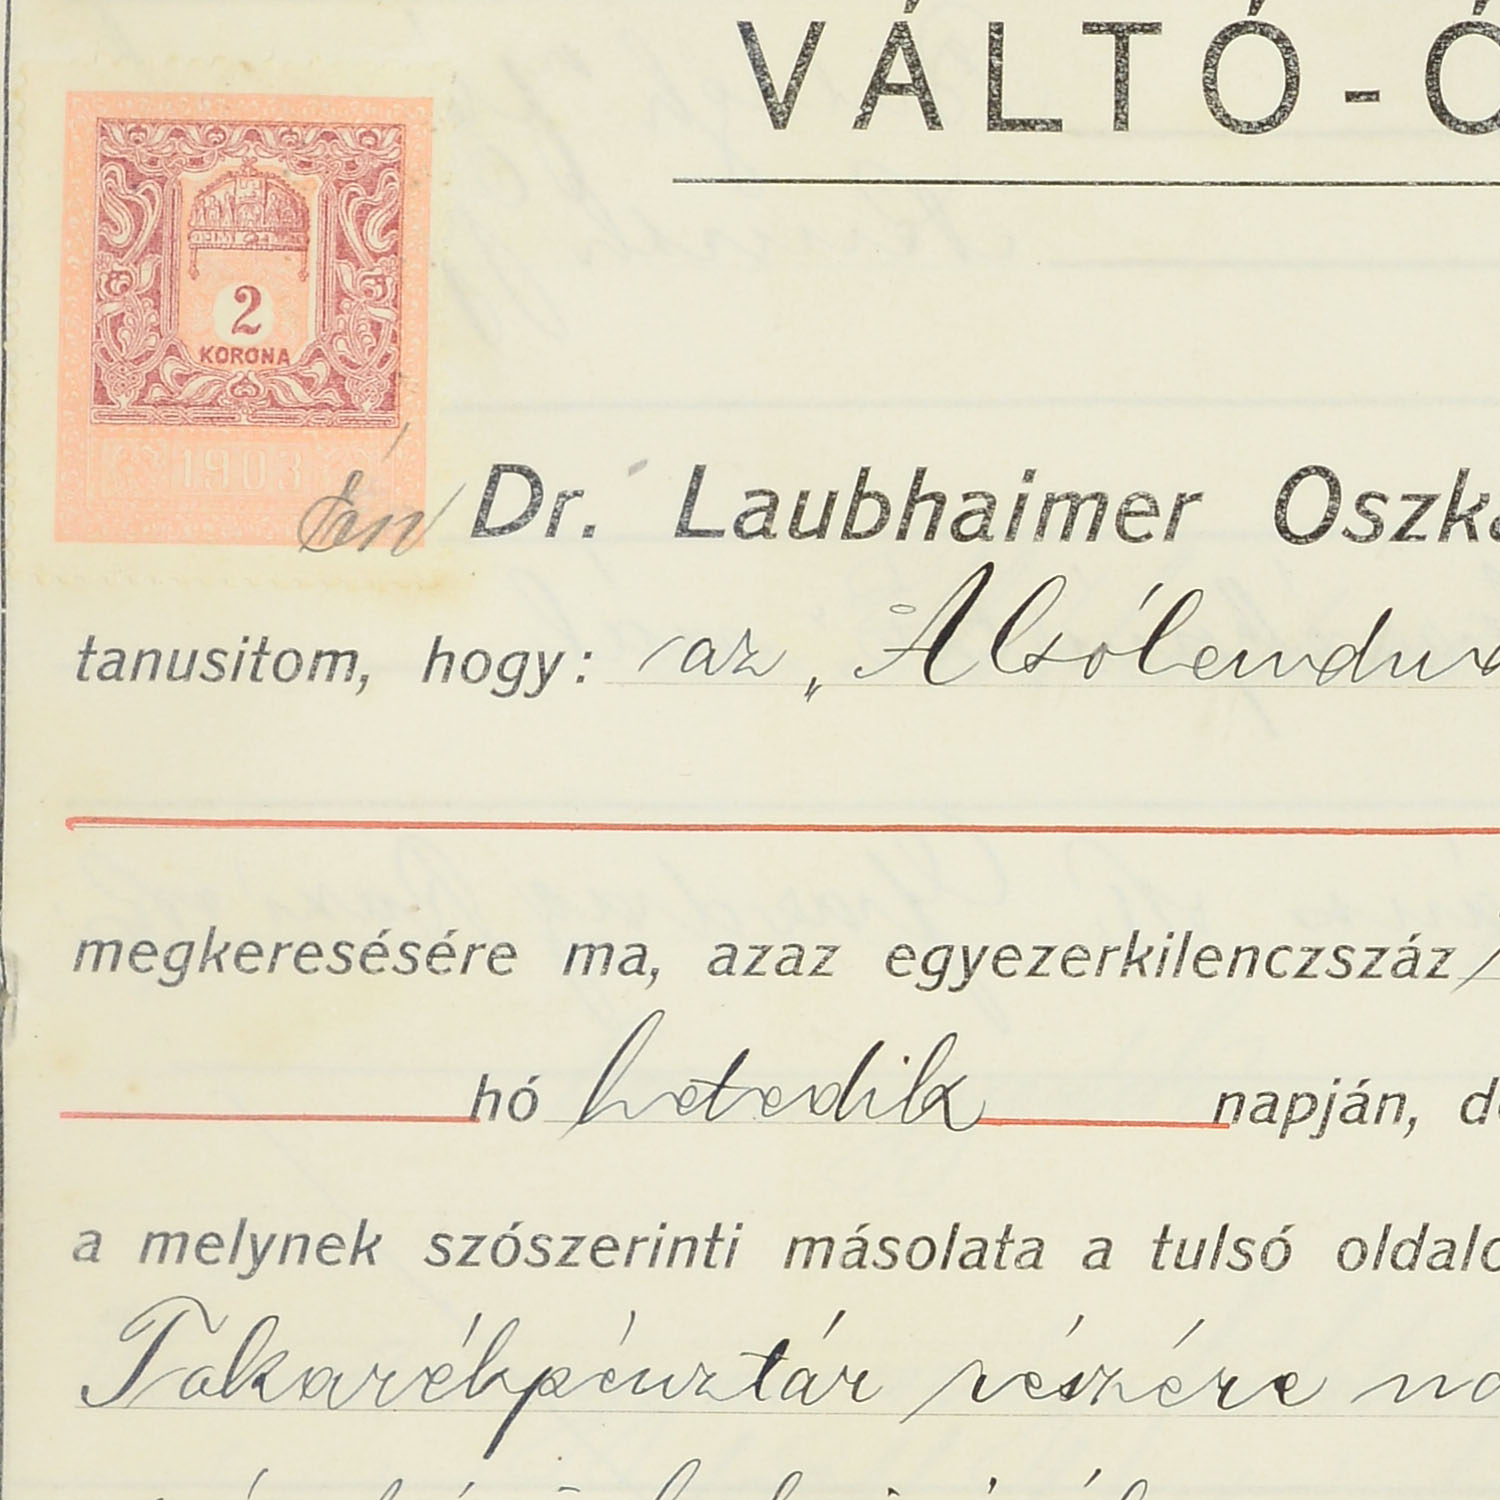 VÁLTÓ-Ó
2
KORONA
1903
Én Dr. Laubhaimer Oszká
tanusitom, hogy: az „Alsólendva
megkeresésére ma, azaz egyezerkilenczszáz
hó hetedik napján, de
a melynek szószerinti másolata a tulsó oldalo
Takarékpénztár részére